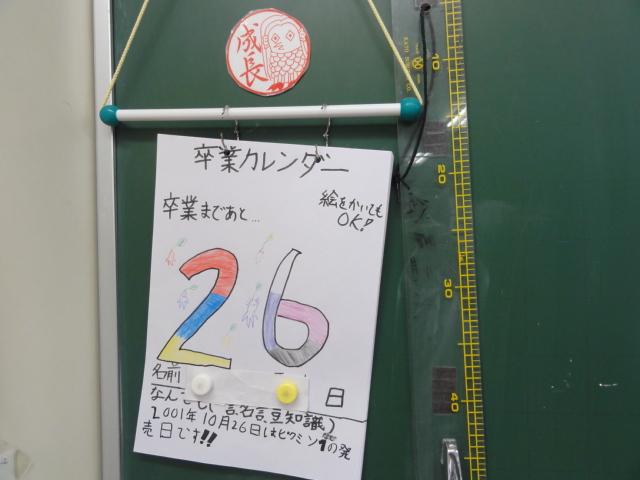 成長
卒業カレンダー
卒業まであと…
絵をかいても
OK!
26
名前
日
なんでも(一言名言豆知識)
2001年10月26日はピクミン1の発
売日です!!
10
20
30
40